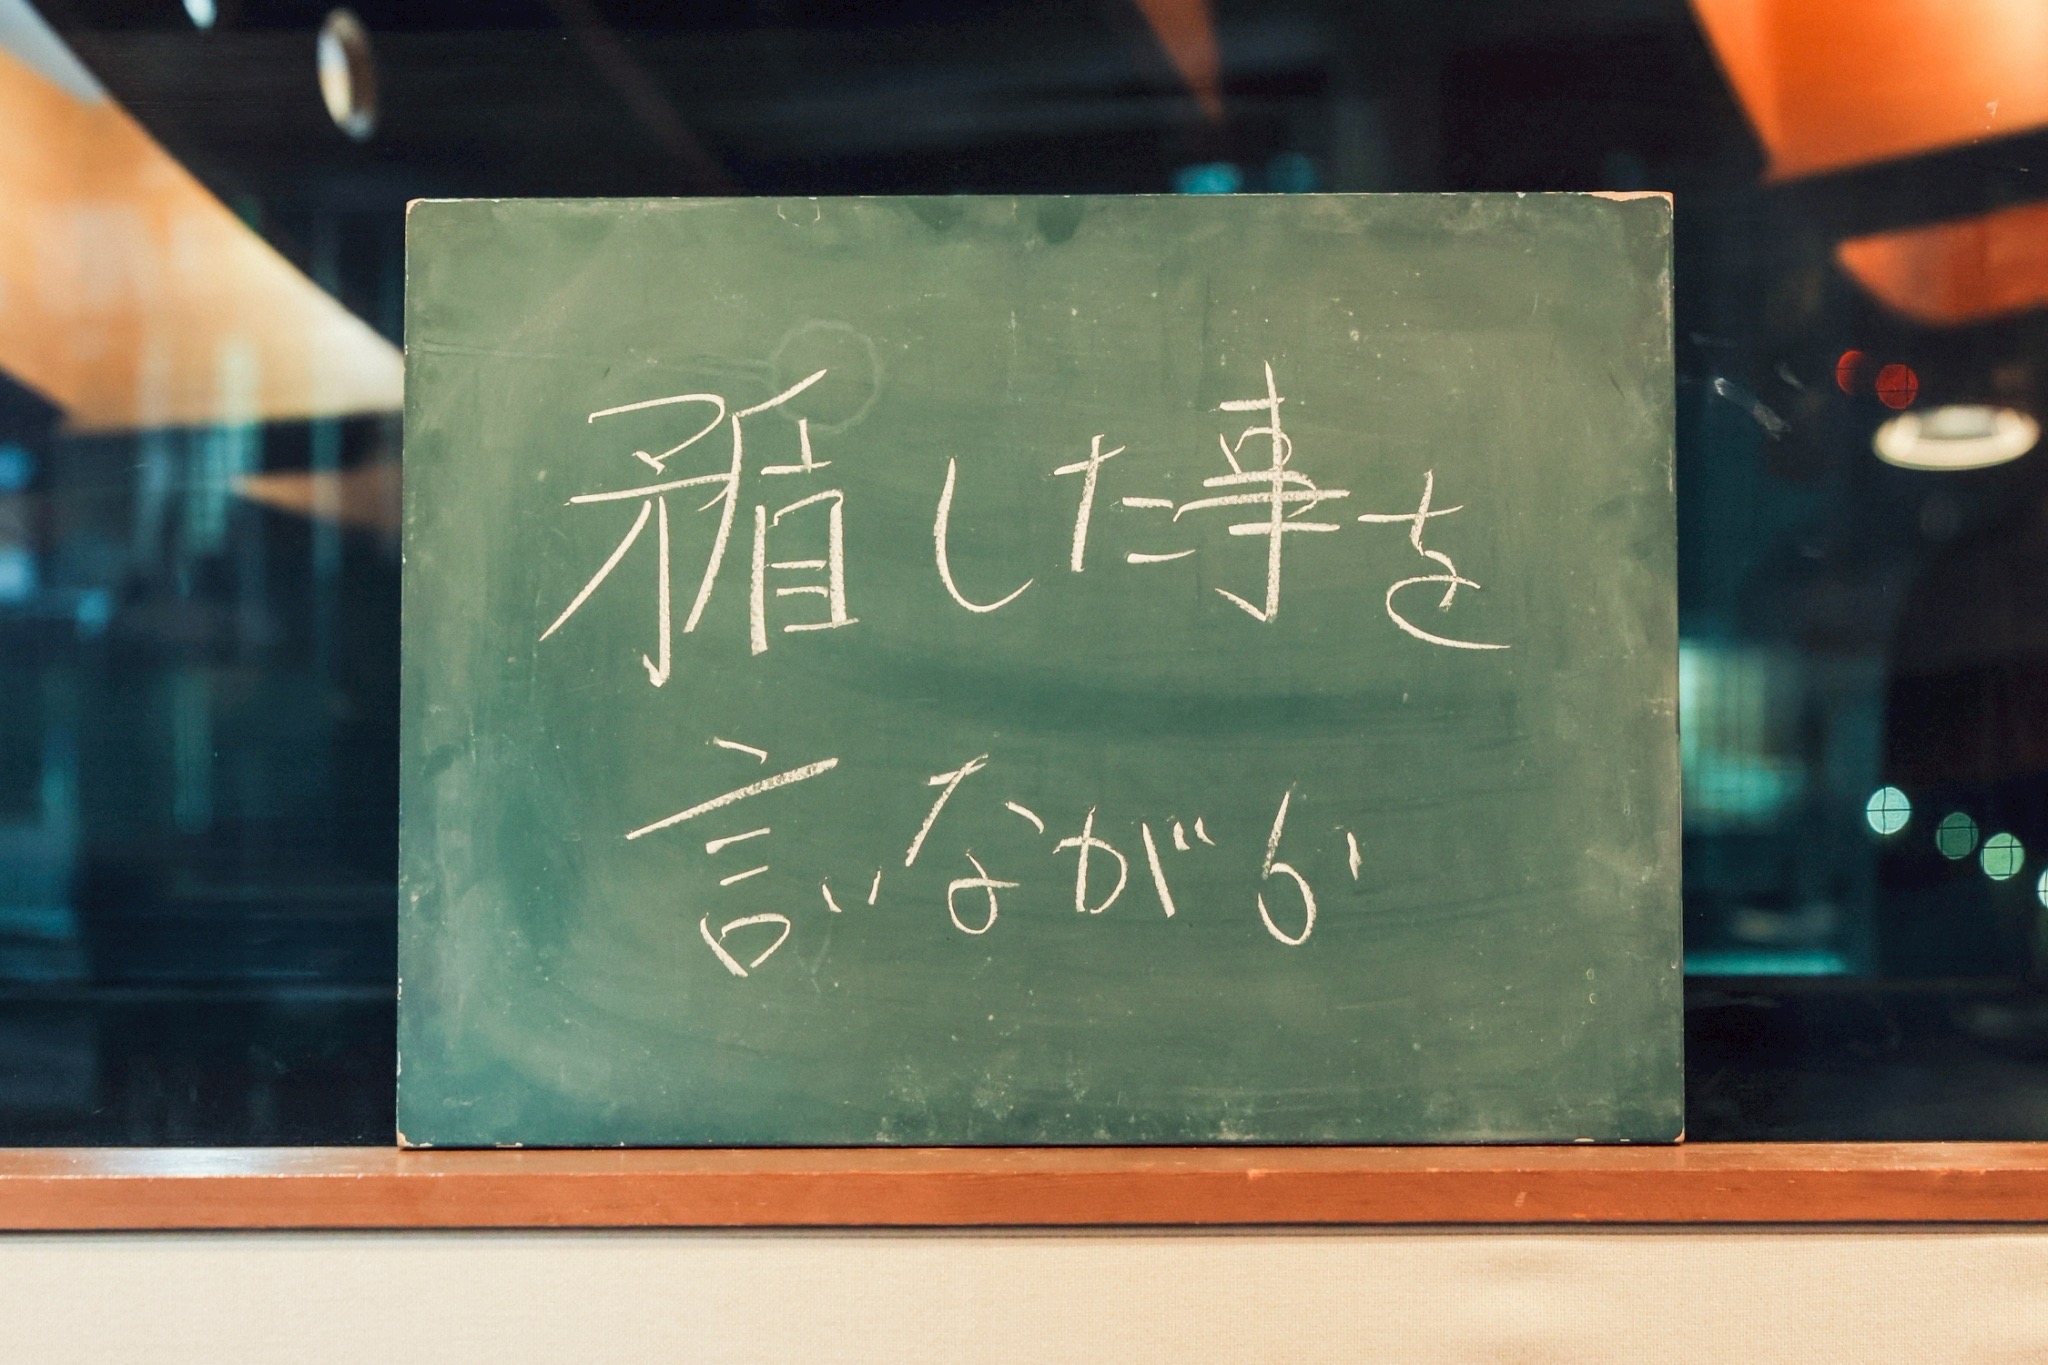 矛盾した事を
言いながら